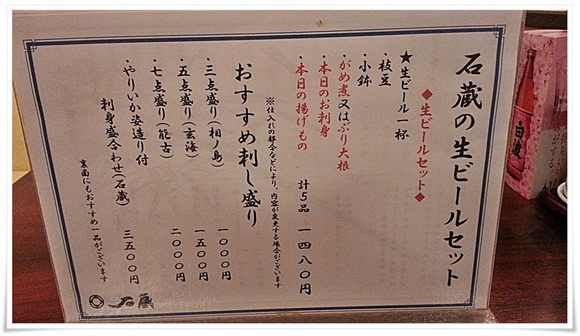 石蔵の生ビールセット
◆生ビールセット◆
★生ビール一杯
・枝豆
・小鉢
・がめ煮又はぶり大根
・本日のお刺身
・本日の揚げもの
計5品 一四八〇円
※仕入れの都合などにより、内容が変更する場合がございます
おすすめ刺し盛り
・三点盛り(相ノ島) 一〇〇〇円
・五点盛り(玄海) 一五〇〇円
・七点盛り(能古) 二〇〇〇円
・やりいか姿造り付
刺身盛合わせ(石蔵) 三五〇〇円
裏面にもおすすめ一品がございます
石蔵
白波